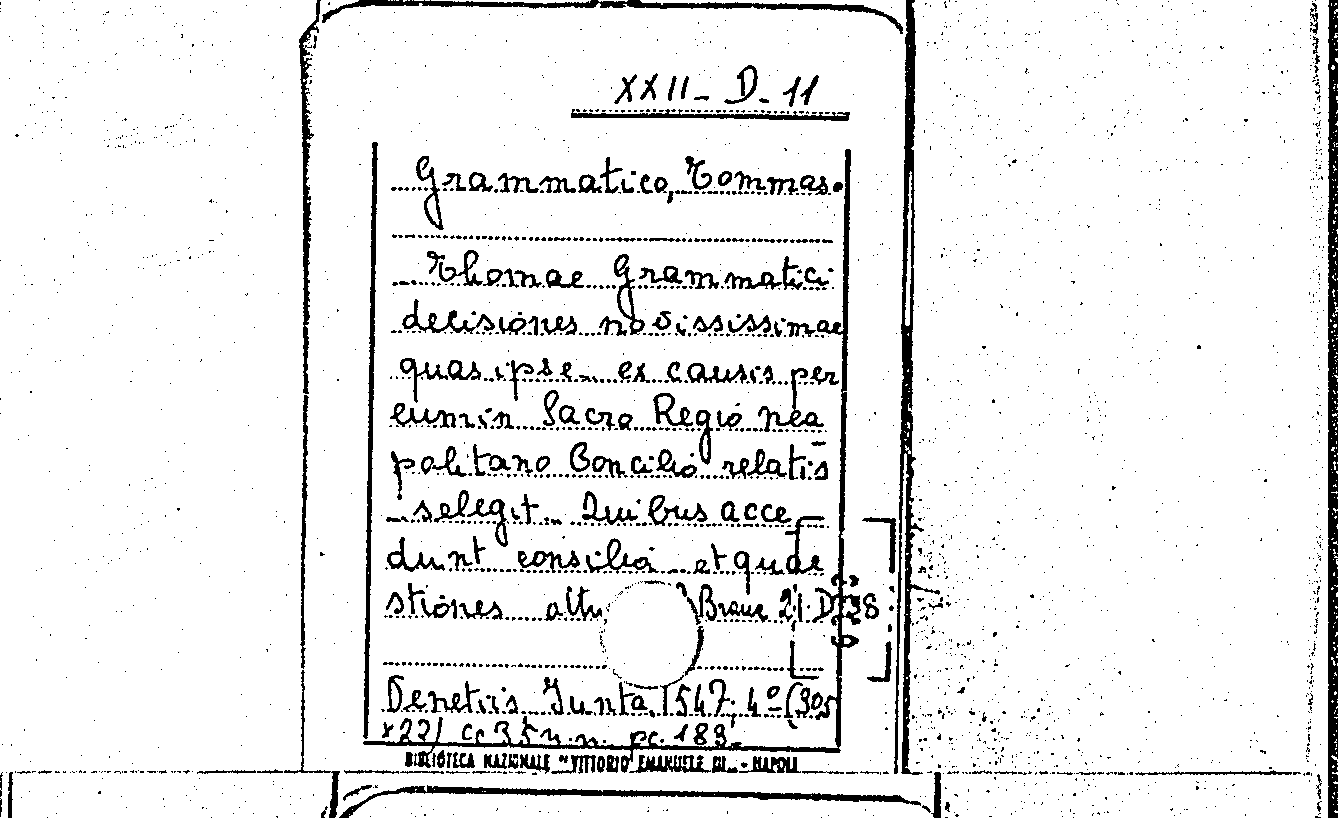 XXII - D - 11
Grammatico, Tommaso
Thomae Grammatici
decisiones novississimae
quas ipse ex causis per
eum in Sacro Regio nea
politano Concilio relatis
selegit. Quibus acce
dunt consilia et quae
stiones
21 D 38
Venetiis Junta, 1547; 4º (305
x 22) cc 35 n.n. pc. 188.
BIBLIOTECA NAZIONALE "VITTORIO EMANUELE III" - NAPOLI